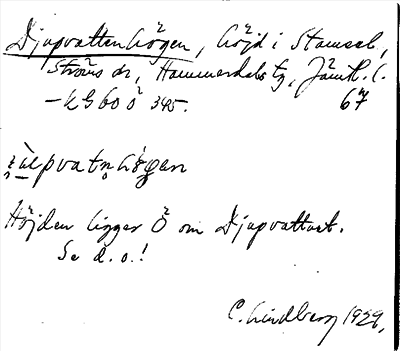 Djupvattenhögen, höjd i Stamsel,
Ströms sn, Hammerdals tg, Jämtl. l.
– kG 60 ö 345. 67
Höjden ligger Ö om Djupvattnet.
Se d. o.!
C. Lindberg 1929.